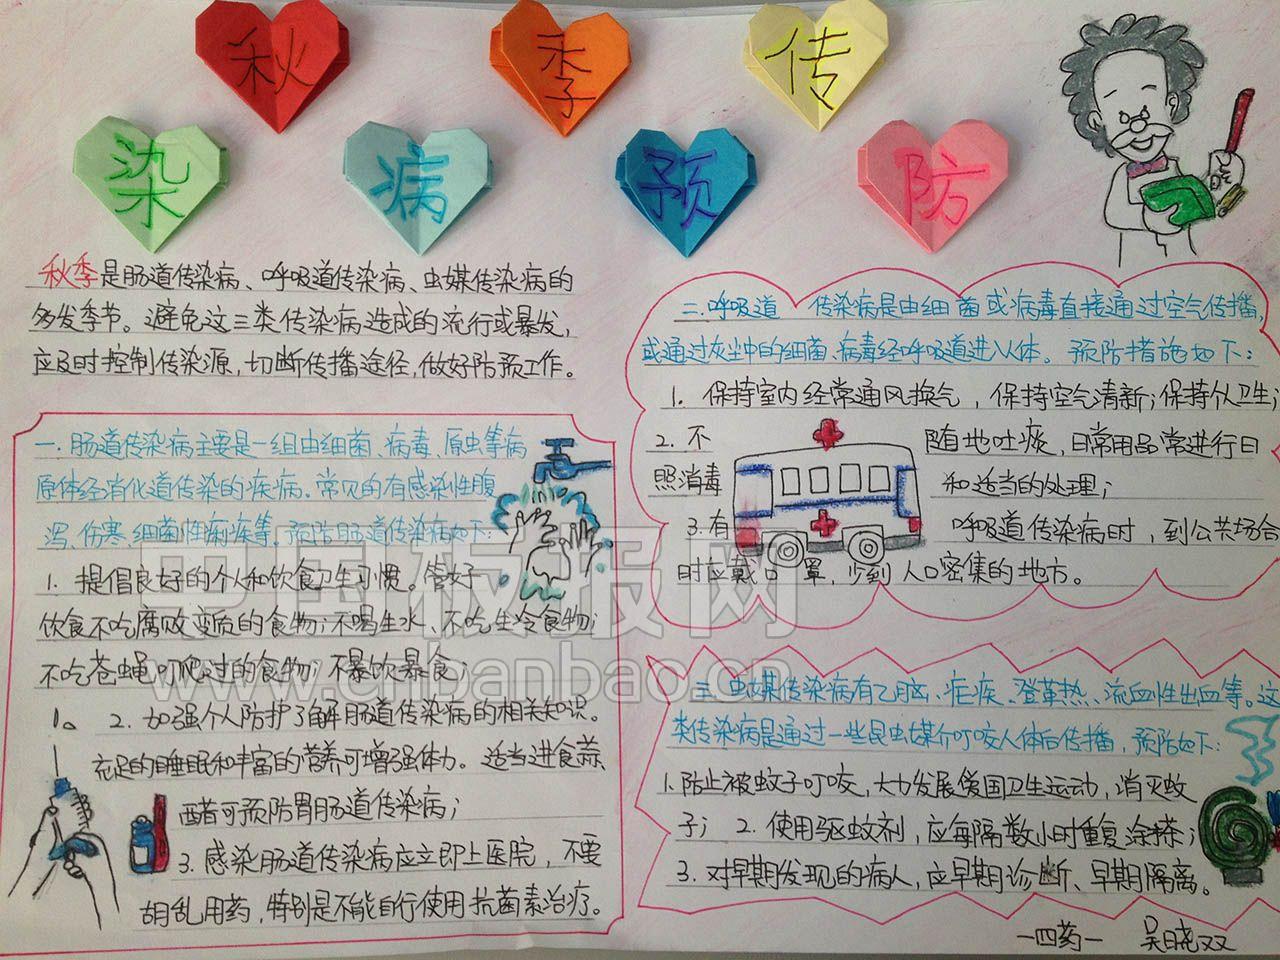 秋季传
染病预防
秋季是肠道传染病、呼吸道传染病、虫媒传染病的
多发季节。避免这三类传染病造成的流行或暴发,
应及时控制传染源,切断传播途径,做好防预工作。
一.肠道传染病主要是一组由细菌、病毒、原虫等病
原体经消化道传染的疾病。常见的有感染性腹
泻、伤寒、细菌性痢疾等。预防肠道传染病如下:
1. 提倡良好的个人和饮食卫生习惯。管好
饮食不吃腐败变质的食物;不喝生水、不吃生冷食物;
不吃苍蝇叮爬过的食物;不暴饮暴食;
2. 加强个人防护了解肠道传染病的相关知识。
充足的睡眠和丰富的营养可增强体力。适当进食蒜、
醋可预防胃肠道传染病;
3. 感染肠道传染病应立即上医院,不要
胡乱用药,特别是不能自行使用抗菌素治疗。
二.呼吸道 传染病是由细菌或病毒直接通过空气传播,
或通过灰尘中的细菌、病毒经呼吸道进入人体。预防措施如下:
1. 保持室内经常通风换气,保持空气清新;保持个人卫生;
2. 不 随地吐痰,日常用品常进行日
照消毒 和适当的处理;
3. 有 呼吸道传染病时,到公共场合
时应戴口罩,少到人口密集的地方。
三.虫媒传染病有乙脑、疟疾、登革热、流血性出血等。这
类传染病是通过一些昆虫媒介叮咬人体后传播,预防如下:
1.防止被蚊子叮咬,大力发展爱国卫生运动,消灭蚊
子; 2. 使用驱蚊剂,应每隔数小时重复涂搽;
3. 对早期发现的病人,应早期诊断、早期隔离。
一四药一 吴晓双
中国板报网
www.cnbanbao.cn